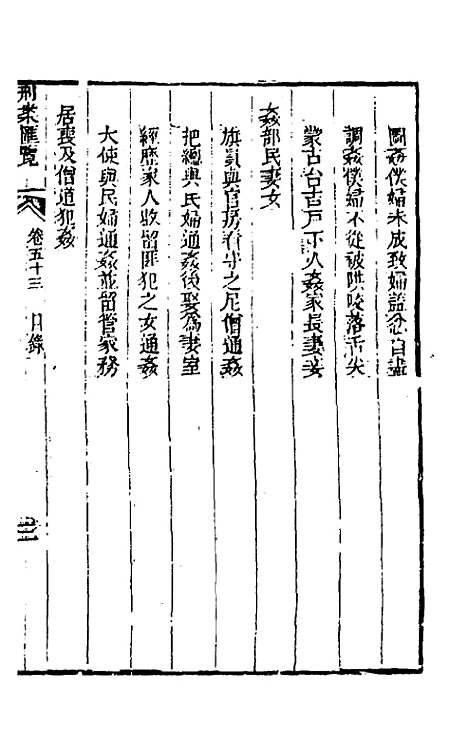 圖姦僕婦未成致婦諡忿自盡
調姦僕婦不從被哄咬落舌尖
蒙古台吉戶下人姦家長妻妾
姦部民妻女
旗員與官房看守之尼僧通姦
把總與民婦通姦後娶為妻室
經歷家人收留匪犯之女通姦
大使與民婦通姦並留管家務
居喪及僧道犯姦
刑案匯覽
卷五十三 目錄
三